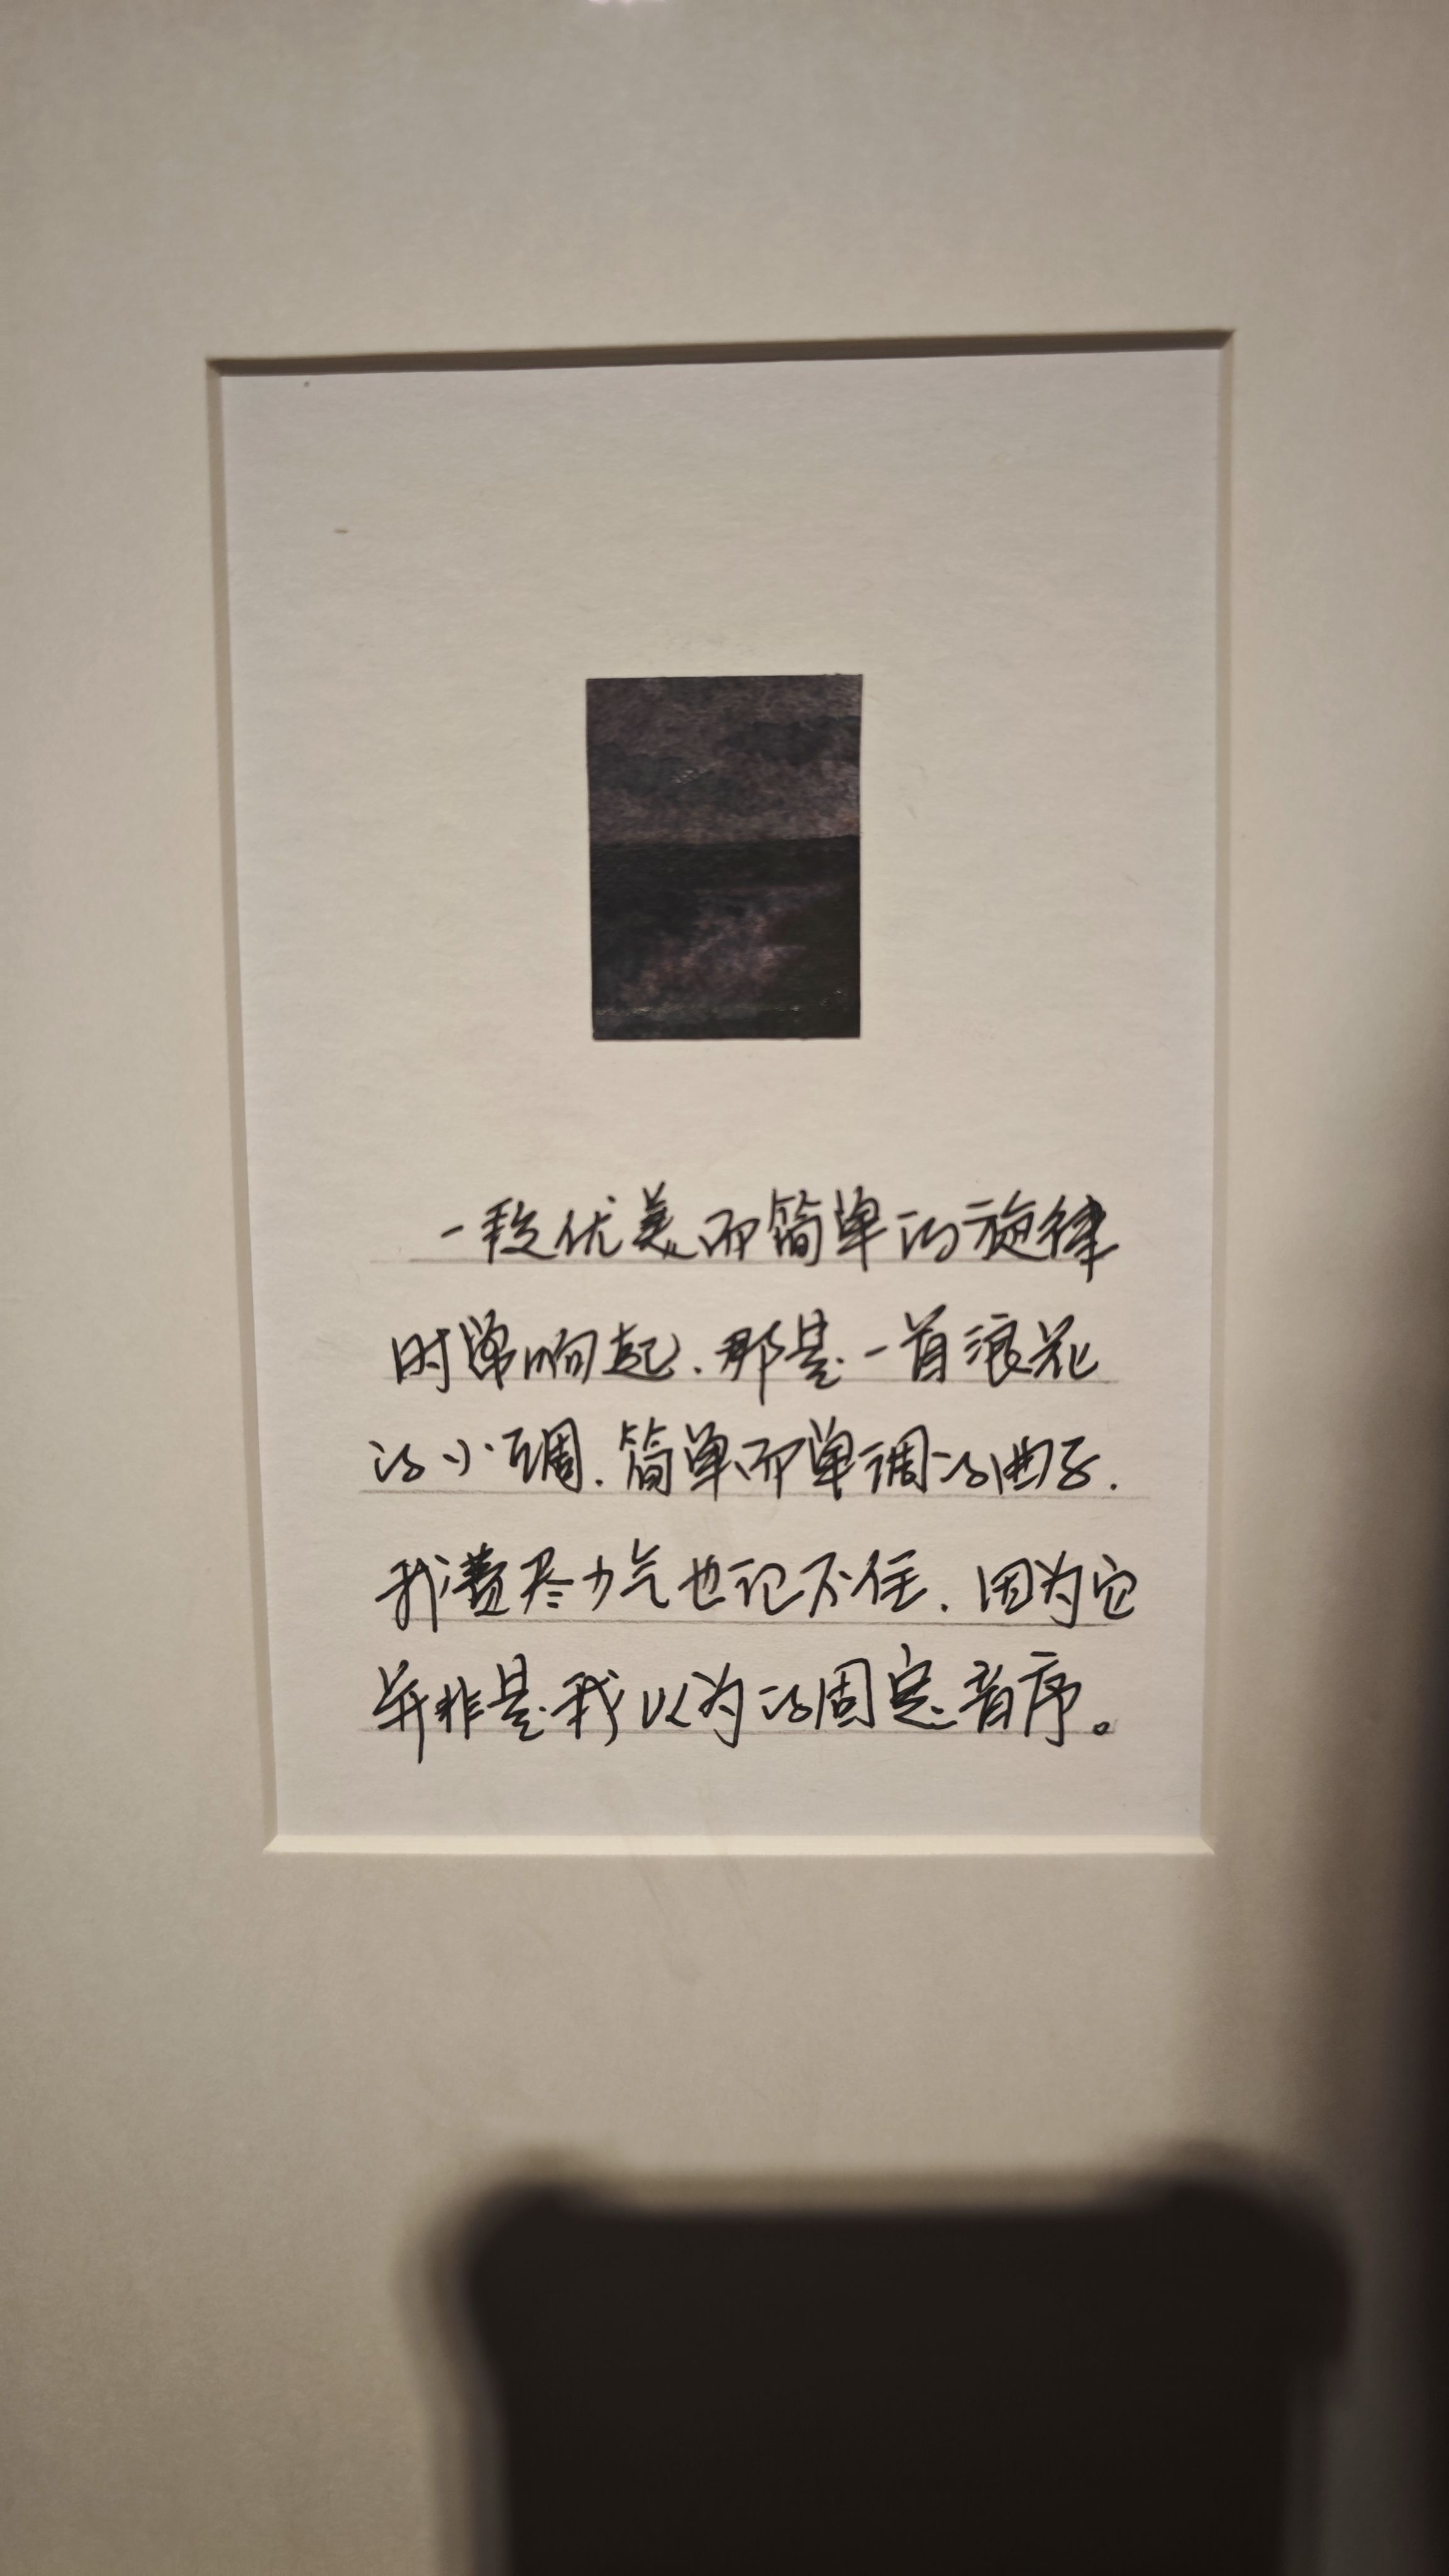 一段优美而简单的旋律
时常响起.那是一首浪花
的小调.简单而单调的曲子.
我费尽力气也记不住.因为它
并非是我以为的固定音序。